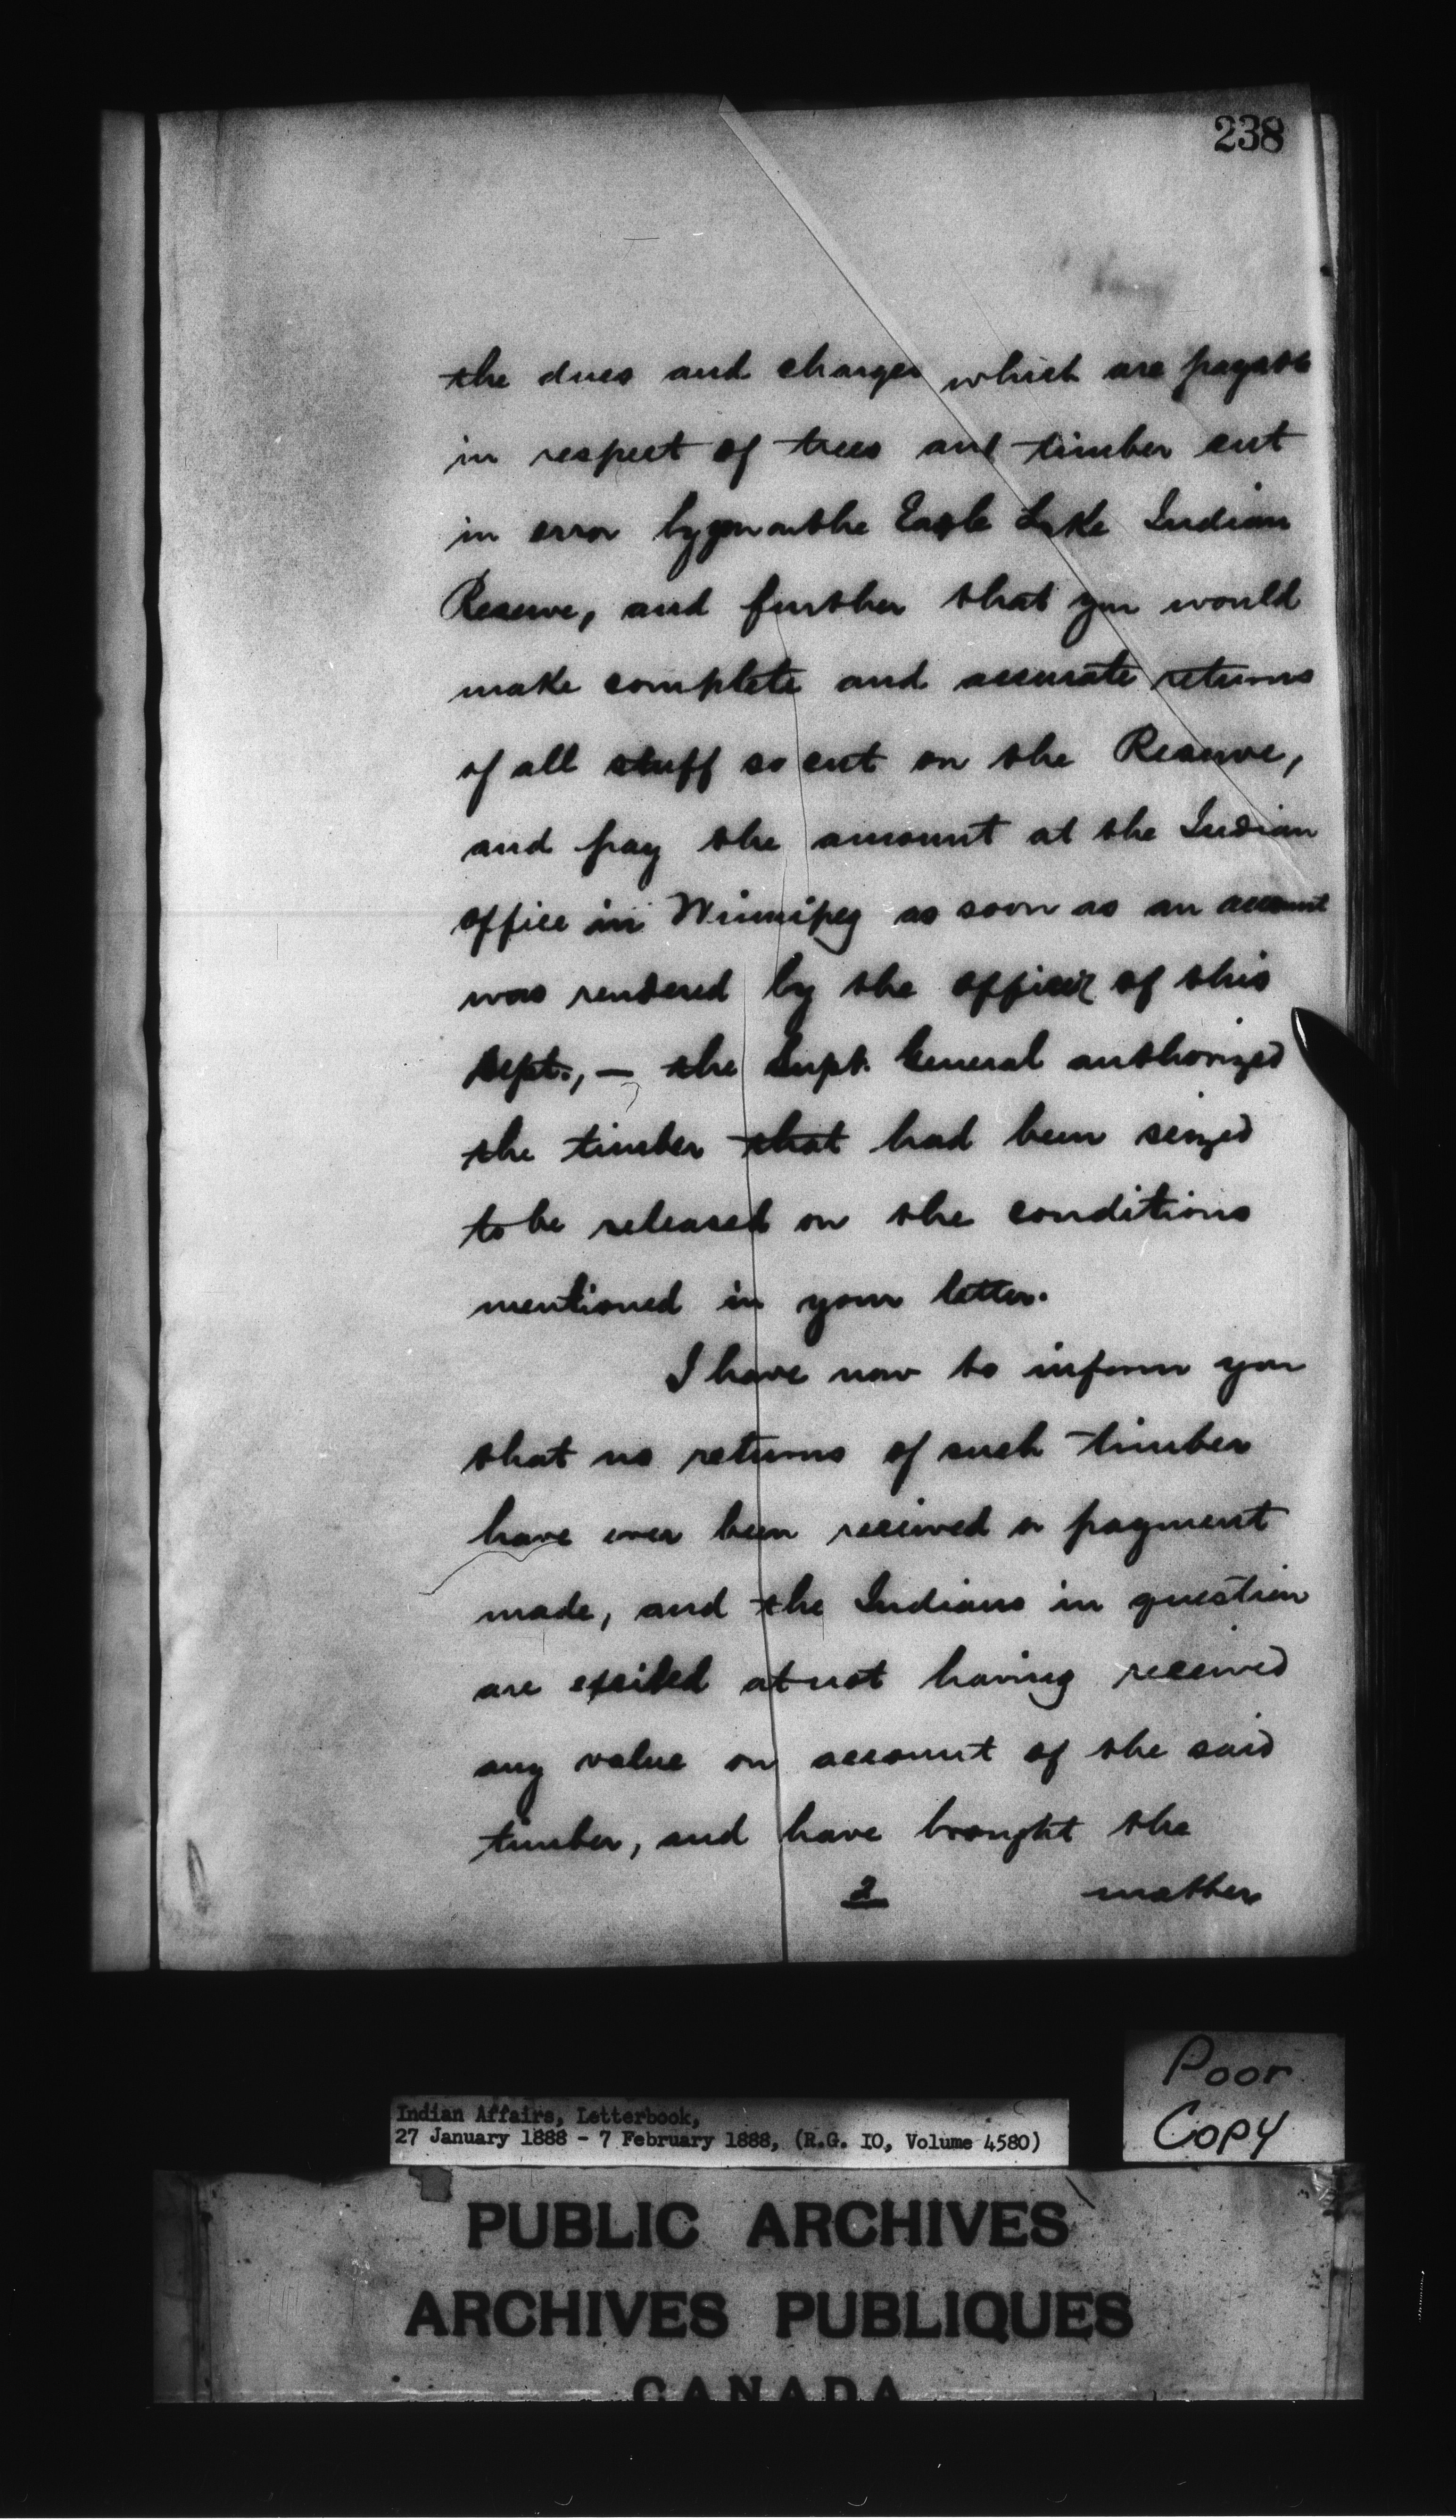 238
the dues and charges which are payable
in respect of trees and timber cut
in error by you on the Eagle Lake Indian
Reserve, and further that you would
make complete and accurate returns
of all stuff so cut on the Reserve,
and pay the amount at the Indian
office in Winnipeg as soon as an account
was rendered by the officer of this
Dept., — the Supt. General authorized
the timber that had been seized
to be released on the conditions
mentioned in your letter.
I have now to inform you
that no returns of such timber
have ever been received or payment
made, and the Indians in question
are excited at not having received
any value on account of the said
timber, and have brought the
2 matter
Poor
Copy
Indian Affairs, Letterbook,
27 January 1888 - 7 February 1888, (R.G. IO, Volume 4580)
PUBLIC ARCHIVES
ARCHIVES PUBLIQUES
CANADA